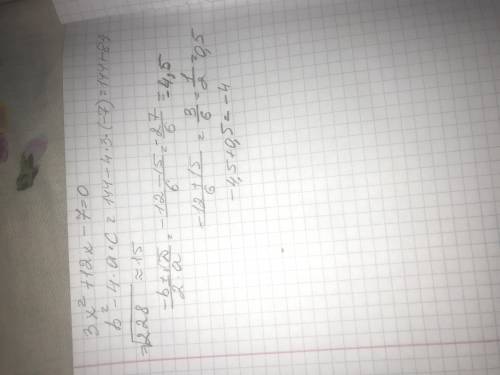 3x²+12x-7=0
b²-4·a·c=144-4·3·(-7)=144+84
=√228 ≈15
-b±√D/2·a = -12-15/6 = -27/6 = -4,5
-12+15/6 = 3/6 = 1/2 = 0,5
-4,5+0,5=-4